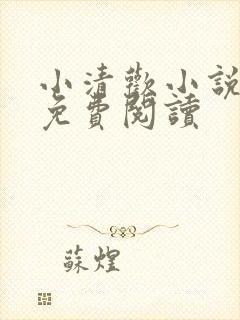 小清歡小說
免費閱讀
蘇煌